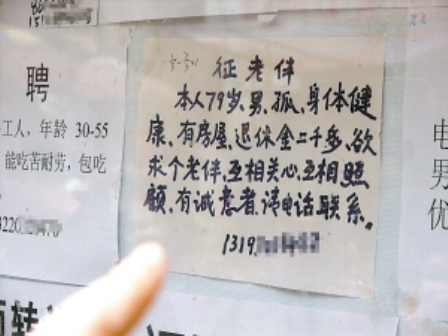 聘
工人，年龄 30-55
能吃苦耐劳，包吃
征老伴
本人79岁、男、孤、身体健
康、有房屋、退保金二千多、欲
求个老伴、互相关心、互相照
顾、有诚意者、请电话联系。
1319
电
男
优